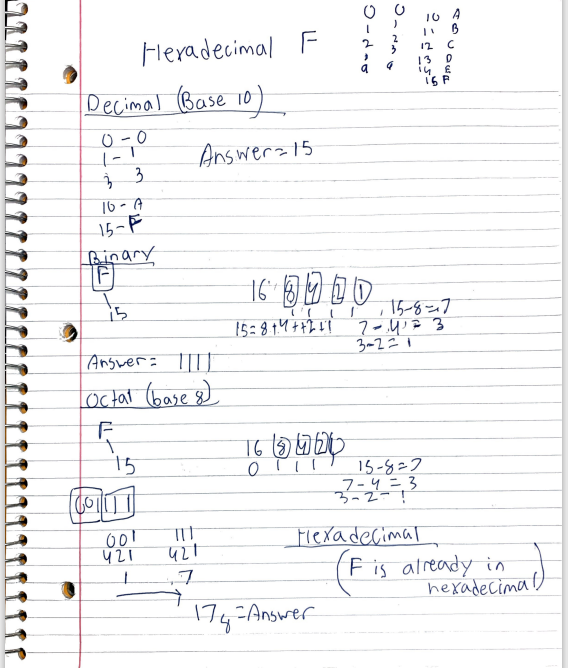 Hexadecimal F
0 0 10 A
1 1 11 B
2 2 12 C
3 3 13 D
9 9 14 E
15 F
Decimal (Base 10)
0 - 0
1 - 1
3 3
Answer = 15
10 - A
15 - F
Binary
F
15
16 8 4 2 1
1 1 1 1
15 = 8 + 4 + + 2 + 1
15 - 8 = 7
7 - 4 = 3
3 - 2 = 1
Answer = 1111
Octal (base 8)
F
15
16 8 4 2 1
0 1 1 1 1
15 - 8 = 7
7 - 4 = 3
3 - 2 - 1
001 111
001 111
421 421
1 7
17 8 = Answer
Hexadecimal
(F is already in
hexadecimal)